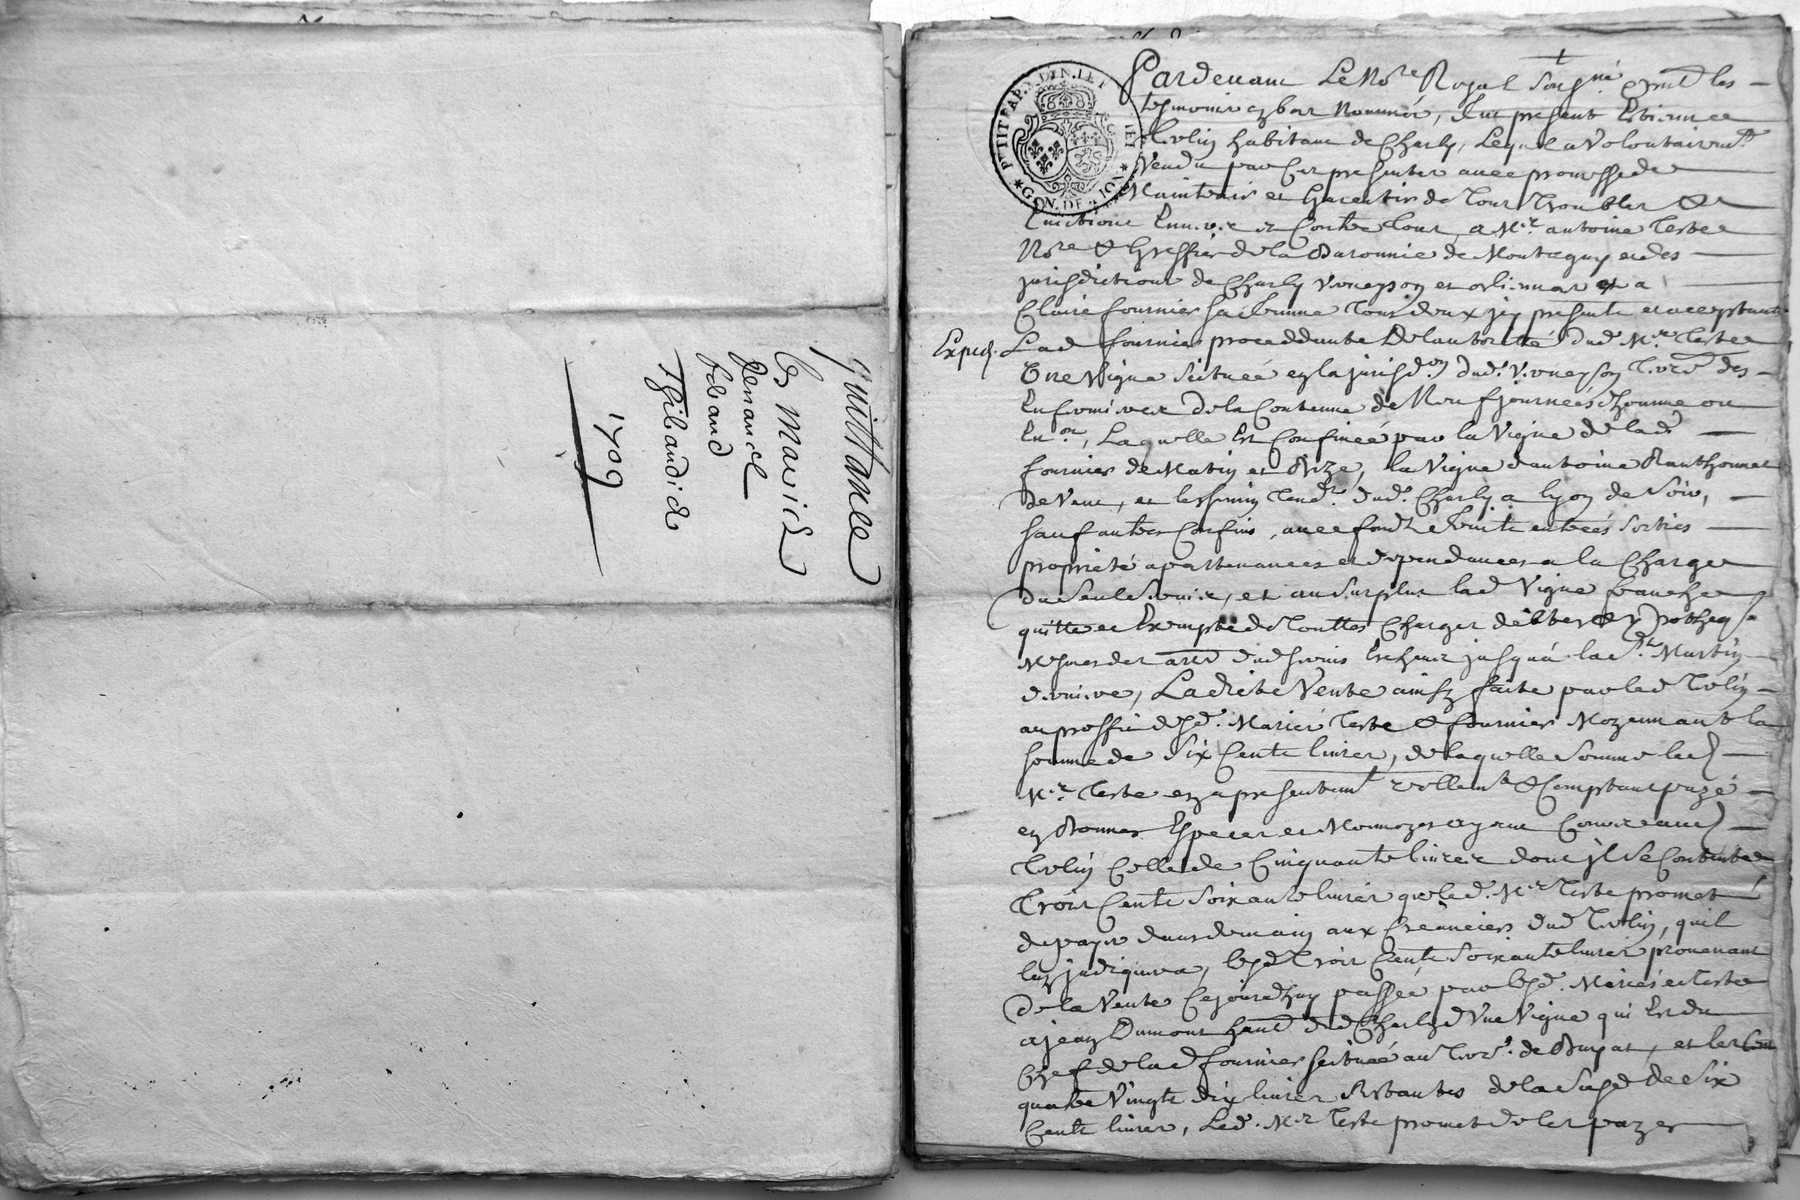 quittance
les mariés
Renaud
febaud
Thibaudier
1709
PTIT PAP. GEN. DE LION
Expéd.
Pardevant Le No.re Royal soug.né present les
tesmoins cy bas Nommés, fut present Estienne
habitant de Charly, Lequel a volontairem.t
Vendu par Ces presentes avec promesse de
Maintenir et Garentir de Tous Troubles &
Evictions Envers et Contre tous, a M.re antoine Teste
No.re & Greffier de la Baronnie de Montagny et des
jurisdictions de Charly Vourlles et orlienas et a
Claire fournier sa femme tous deux icy presents et acceptants
Lad fournier proceddante de lautorité dud. M.re Teste
Une Vigne scituée en la jurisd.on dud. Terr.e des
de la Contenue de Neuf journées dhomme ou
En.on, Laquelle Est Confinée par la Vigne de lad.
fournier de Matin et Bize, la Vigne dantoine
de Vent, et le chemin Tend.t dud. Charly a lyon de Soir,
sauf autres Confins, avec fond entrées sorties
propriété apartenances et dependances a la Charge
du seul Servis, et au surplus lad Vigne franche
quitte et Exempte de Touttes Charges debtes & ypotheq
Mesmes des arre. dud servis Escheus jusqu'a la S.t Martin
derniere, Ladicte Vente ainsy faite par led
au proffit desd. Mariés Teste & fournier Moyennant la
somme de Six Cents livres, de laquelle Somme led
M.re Teste en a presentem.t reellem.t & Comptant payé
en Bonnes Especes et Monnoyes ayant Cours aud
Celle de Cinquante livres dont jl se Contente
Trois Cents Soixante livres que led. M.re Teste promet
de payer dans demain aux Creanciers dud quil
luy jndiquera, lesd Trois Cents Soixante livres provenant
de la Vente Cejourdhuy passée par lesd. Mariés Teste
a jean Dumont habt dud Charly d'Une Vigne qui Est du
Chef de lad fournier scituée au Terr.e de et les Cent
quatre Vingts dix livres Restantes de la Susd de Six
Cents livres, Led. M.re Teste promet de les payer